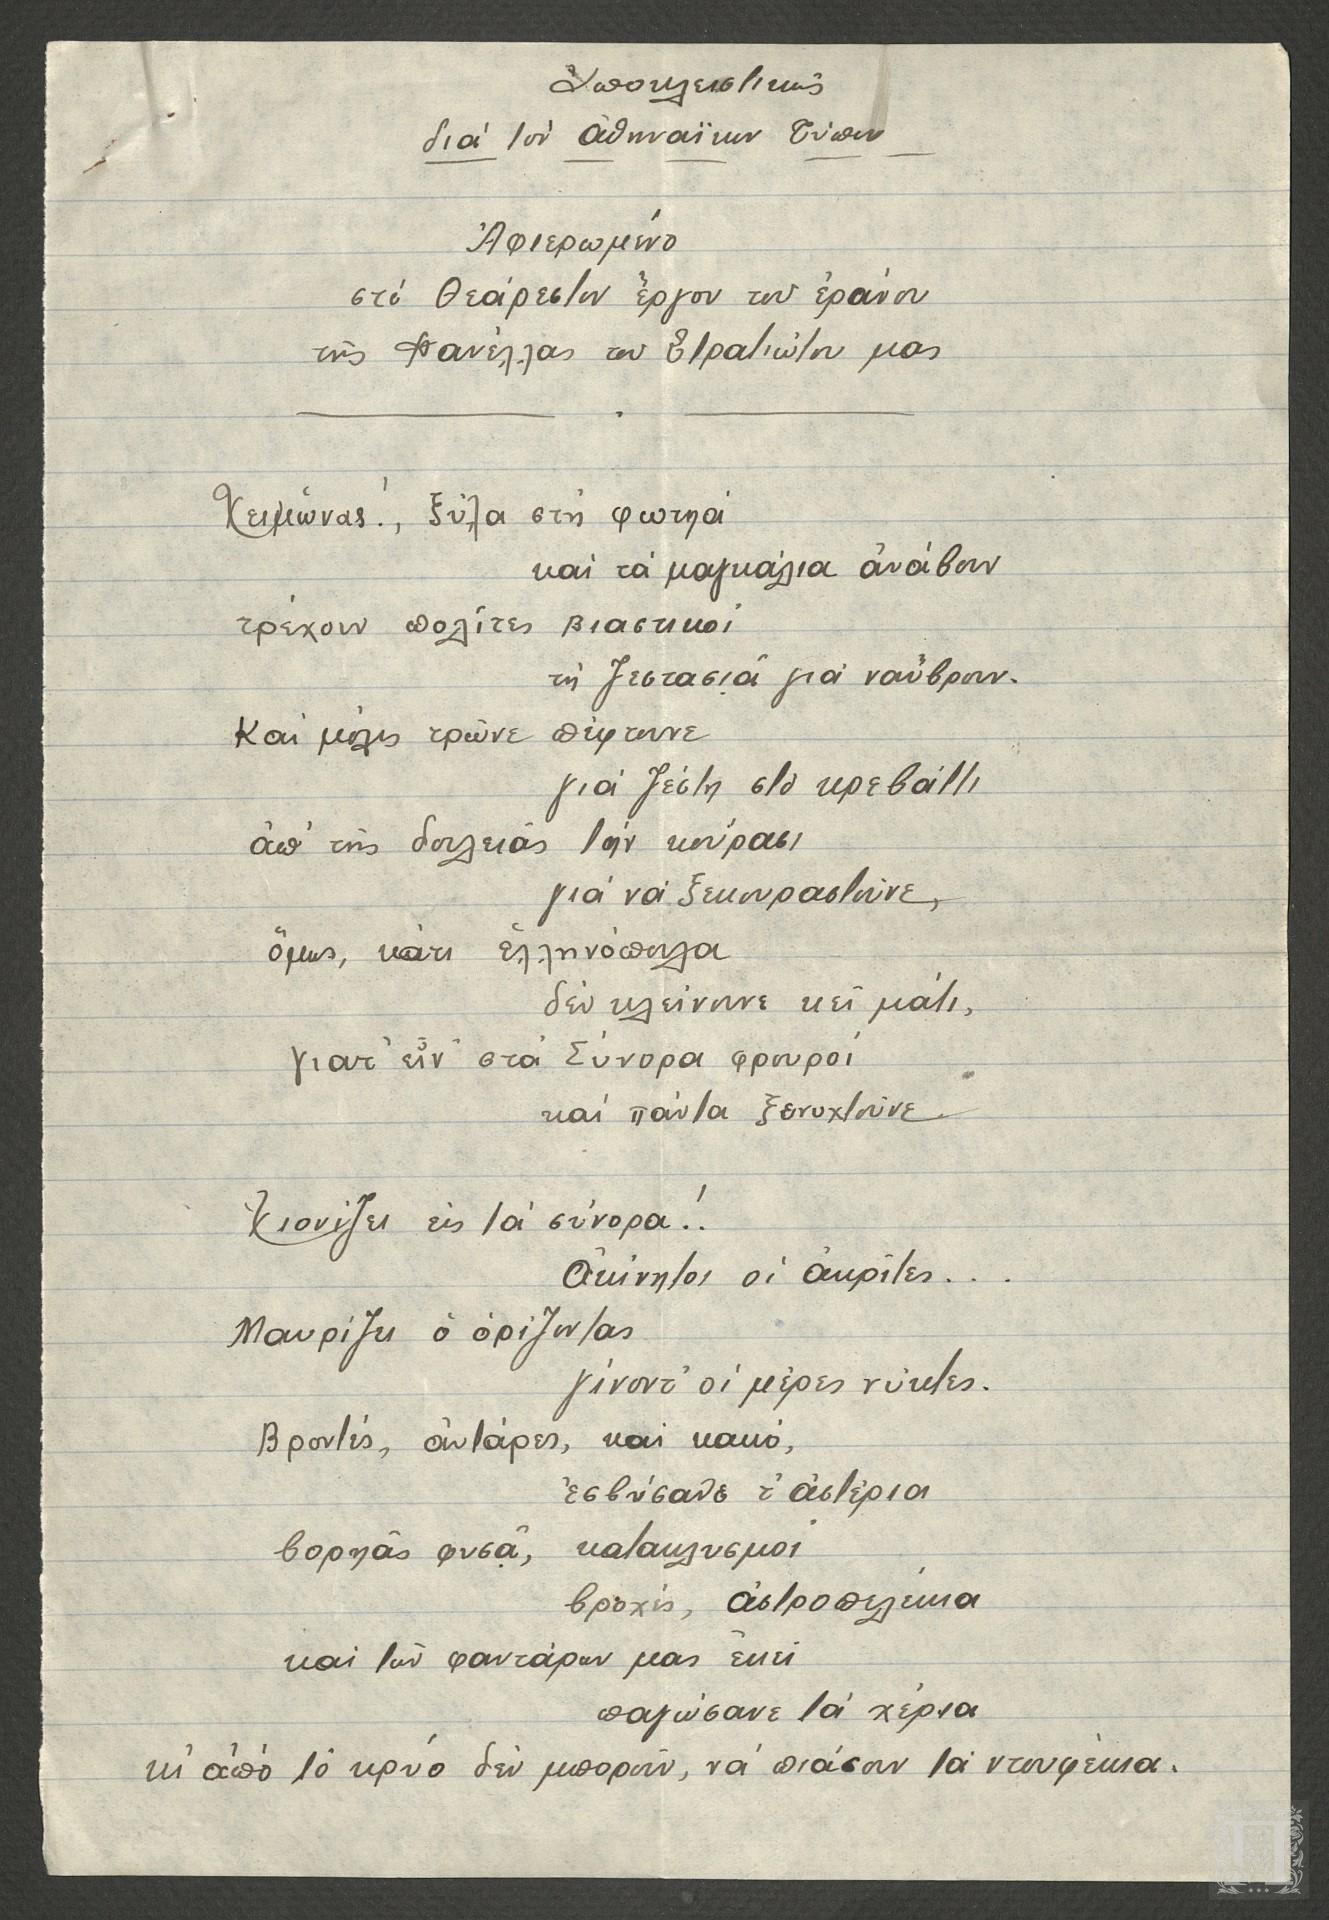 Ἀποκλειστικῶς
διά τόν Ἀθηναϊκον Τύπον
Ἀφιερωμένο
στό θεάρεστον ἔργον του ἐράνου
τῆς Φανέλλας του Στρατιώτου μας
Χειμῶνας!, ξύλα στή φωτηά
καί τά μαγκάλια ἀνάβουν
τρέχουν πολίτες βιαστικοί
τή ζεστασιᾶ γιά ναὔβρουν.
Καί μόλις τρῶνε πέφτουνε
γιά ζέστη στό κρεβάττι
ἀπ' τῆς δουλειᾶς τήν κούρασι
γιά νά ξεκουραστοῦνε,
ὅμως, κάτι ἑλληνόπουλα
δέν κλείνουνε κεῖ μάτι,
γιατ' εἶν' στά Σύνορα φρουροί
καί πάντα ξενυχτοῦνε.
Χιονίζει εἰς τά σύνορα!.
Ἀκίνητοι οἱ ἀκρῖτες...
Μαυρίζει ὁ ὁρίζοντας
γίνοντ' οἱ μέρες νύκτες.
Βροντές, ἀντάρες, καί κακό,
ἐσβύσανε τ' ἀστέρια
βορηᾶς φυσᾷ, κατακλυσμοί
βροχές, ἀστροπελέκια
καί τῶν φαντάρων μας ἐκεῖ
παγώσανε τά χέρια
κι' ἀπό τό κρύο δέν μποροῦν, νά πιάσουν τά ντουφέκια.